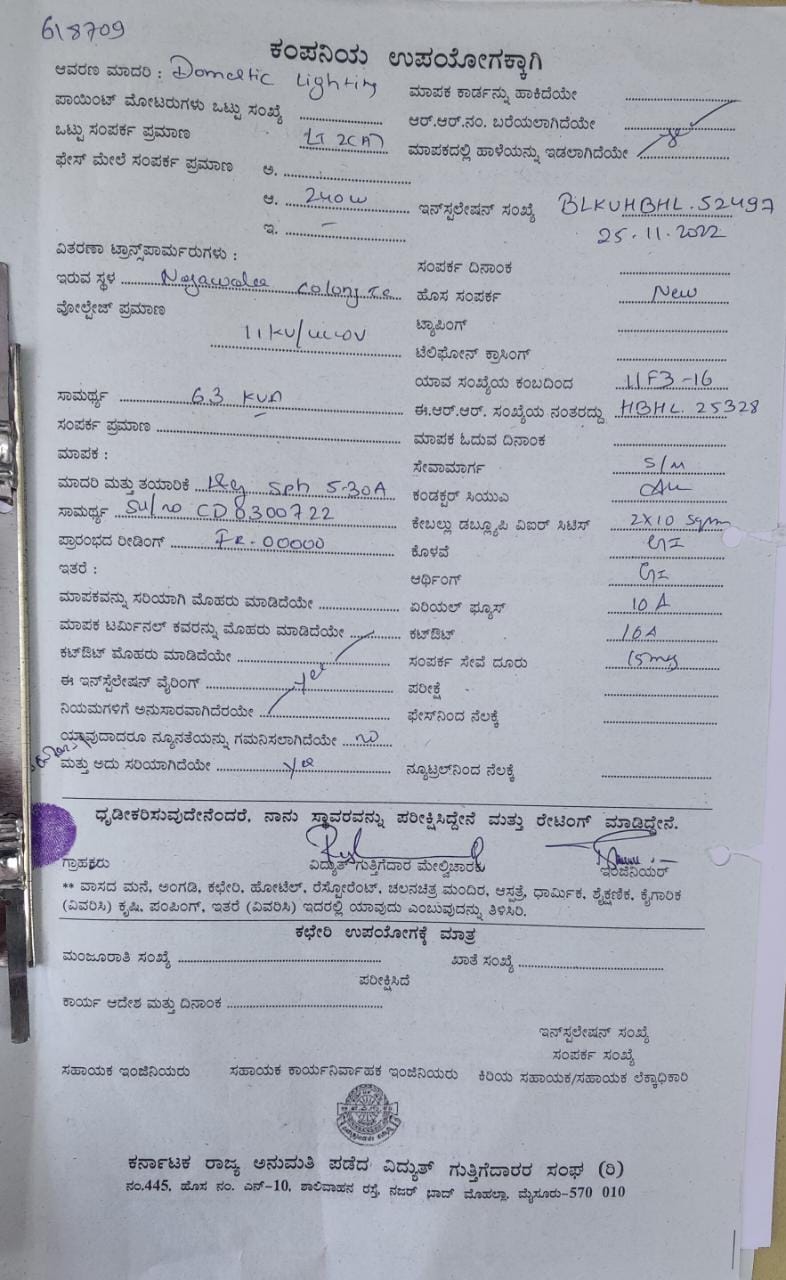 618709
ಕಂಪನಿಯ ಉಪಯೋಗಕ್ಕಾಗಿ
ಆವರಣ ಮಾದರಿ : Domestic Lighting
ಮಾಪಕ ಕಾರ್ಡನ್ನು ಹಾಕಿದೆಯೇ
ಪಾಯಿಂಟ್ ಮೋಟರುಗಳು ಒಟ್ಟು ಸಂಖ್ಯೆ
ಆರ್.ಆರ್.ನಂ. ಬರೆಯಲಾಗಿದೆಯೇ
ಒಟ್ಟು ಸಂಪರ್ಕ ಪ್ರಮಾಣ LT 2(A)
ಮಾಪಕದಲ್ಲಿ ಹಾಳೆಯನ್ನು ಇಡಲಾಗಿದೆಯೇ
ಫೇಸ್ ಮೇಲೆ ಸಂಪರ್ಕ ಪ್ರಮಾಣ ಅ.
ಆ. 240w
ಇನ್‌ಸ್ಟಲೇಷನ್ ಸಂಖ್ಯೆ BLKUHBHL.52497
ಇ. –
25.11.2022
ವಿತರಣಾ ಟ್ರಾನ್ಸ್‌ಪಾರ್ಮರುಗಳು :
ಸಂಪರ್ಕ ದಿನಾಂಕ
ಇರುವ ಸ್ಥಳ Colony
ಹೊಸ ಸಂಪರ್ಕ New
ವೋಲ್ಟೇಜ್ ಪ್ರಮಾಣ
ಟ್ಯಾಪಿಂಗ್
11KV/
ಟೆಲಿಫೋನ್ ಕ್ರಾಸಿಂಗ್
ಯಾವ ಸಂಖ್ಯೆಯ ಕಂಬದಿಂದ 11F3-16
ಸಾಮರ್ಥ್ಯ 63 KVA
ಈ.ಆರ್.ಆರ್. ಸಂಖ್ಯೆಯ ನಂತರದ್ದು HBHL.25328
ಸಂಪರ್ಕ ಪ್ರಮಾಣ
ಮಾಪಕ ಓದುವ ದಿನಾಂಕ
ಮಾಪಕ :
ಸೇವಾಮಾರ್ಗ S/M
ಮಾದರಿ ಮತ್ತು ತಯಾರಿಕೆ L&G Sph 5-30A
ಕಂಡಕ್ಟರ್ ಸಿಯುಎ
ಸಾಮರ್ಥ್ಯ Sl/no CD8300722
ಕೇಬಲ್ಲು ಡಬ್ಲ್ಯೂಪಿ ವಿಐರ್ ಸಿಟಿಸ್ 2X10 Sqmm
ಪ್ರಾರಂಭದ ರೀಡಿಂಗ್ IR-00000
ಕೊಳವೆ GI
ಇತರೆ :
ಆರ್ಥಿಂಗ್ GI
ಮಾಪಕವನ್ನು ಸರಿಯಾಗಿ ಮೊಹರು ಮಾಡಿದೆಯೇ
ಏರಿಯಲ್ ಫ್ಯೂಸ್ 10A
ಮಾಪಕ ಟರ್ಮಿನಲ್ ಕವರನ್ನು ಮೊಹರು ಮಾಡಿದೆಯೇ
ಕಟ್‌ಔಟ್ 16A
ಕಟ್‌ಔಟ್ ಮೊಹರು ಮಾಡಿದೆಯೇ
ಸಂಪರ್ಕ ಸೇವೆ ದೂರು 15
ಈ ಇನ್‌ಸ್ಟೆಲೇಷನ್ ವೈರಿಂಗ್ yes
ಪರೀಕ್ಷೆ
ನಿಯಮಗಳಿಗೆ ಅನುಸಾರವಾಗಿದೆರಯೇ
ಫೇಸ್‌ನಿಂದ ನೆಲಕ್ಕೆ
ಯಾವುದಾದರೂ ನ್ಯೂನತೆಯನ್ನು ಗಮನಿಸಲಾಗಿದೆಯೇ no
ಮತ್ತು ಅದು ಸರಿಯಾಗಿದೆಯೇ yes
ನ್ಯೂಟ್ರಲ್‌ನಿಂದ ನೆಲಕ್ಕೆ
ಧೃಡೀಕರಿಸುವುದೇನೆಂದರೆ, ನಾನು ಸ್ಥಾವರವನ್ನು ಪರೀಕ್ಷಿಸಿದ್ದೇನೆ ಮತ್ತು ರೇಟಿಂಗ್ ಮಾಡಿದ್ದೇನೆ.
ಗ್ರಾಹಕರು ವಿದ್ಯುತ್ ಗುತ್ತಿಗೆದಾರ ಮೇಲ್ವಿಚಾರಕ ಇಂಜಿನಿಯರ್
** ವಾಸದ ಮನೆ, ಅಂಗಡಿ, ಕಛೇರಿ, ಹೋಟೆಲ್, ರೆಸ್ಟೋರೆಂಟ್, ಚಲನಚಿತ್ರ ಮಂದಿರ, ಆಸ್ಪತ್ರೆ, ಧಾರ್ಮಿಕ, ಶೈಕ್ಷಣಿಕ, ಕೈಗಾರಿಕ
(ವಿವರಿಸಿ) ಕೃಷಿ, ಪಂಪಿಂಗ್, ಇತರೆ (ವಿವರಿಸಿ) ಇದರಲ್ಲಿ ಯಾವುದು ಎಂಬುವುದನ್ನು ತಿಳಿಸಿರಿ.
ಕಛೇರಿ ಉಪಯೋಗಕ್ಕೆ ಮಾತ್ರ
ಮಂಜೂರಾತಿ ಸಂಖ್ಯೆ
ಖಾತೆ ಸಂಖ್ಯೆ
ಪರೀಕ್ಷಿಸಿದೆ
ಕಾರ್ಯ ಆದೇಶ ಮತ್ತು ದಿನಾಂಕ
ಇನ್‌ಸ್ಟಲೇಷನ್ ಸಂಖ್ಯೆ
ಸಂಪರ್ಕ ಸಂಖ್ಯೆ
ಸಹಾಯಕ ಇಂಜಿನಿಯರು ಸಹಾಯಕ ಕಾರ್ಯನಿರ್ವಾಹಕ ಇಂಜಿನಿಯರು ಕಿರಿಯ ಸಹಾಯಕ/ಸಹಾಯಕ ಲೆಕ್ಕಾಧಿಕಾರಿ
ಕರ್ನಾಟಕ ರಾಜ್ಯ ಅನುಮತಿ ಪಡೆದ ವಿದ್ಯುತ್ ಗುತ್ತಿಗೆದಾರರ ಸಂಘ (ರಿ)
ನಂ.445, ಹೊಸ ನಂ. ಎನ್-10, ಶಾಲಿವಾಹನ ರಸ್ತೆ, ನಜರ್ ಬಾದ್ ಮೊಹಲ್ಲಾ, ಮೈಸೂರು-570 010